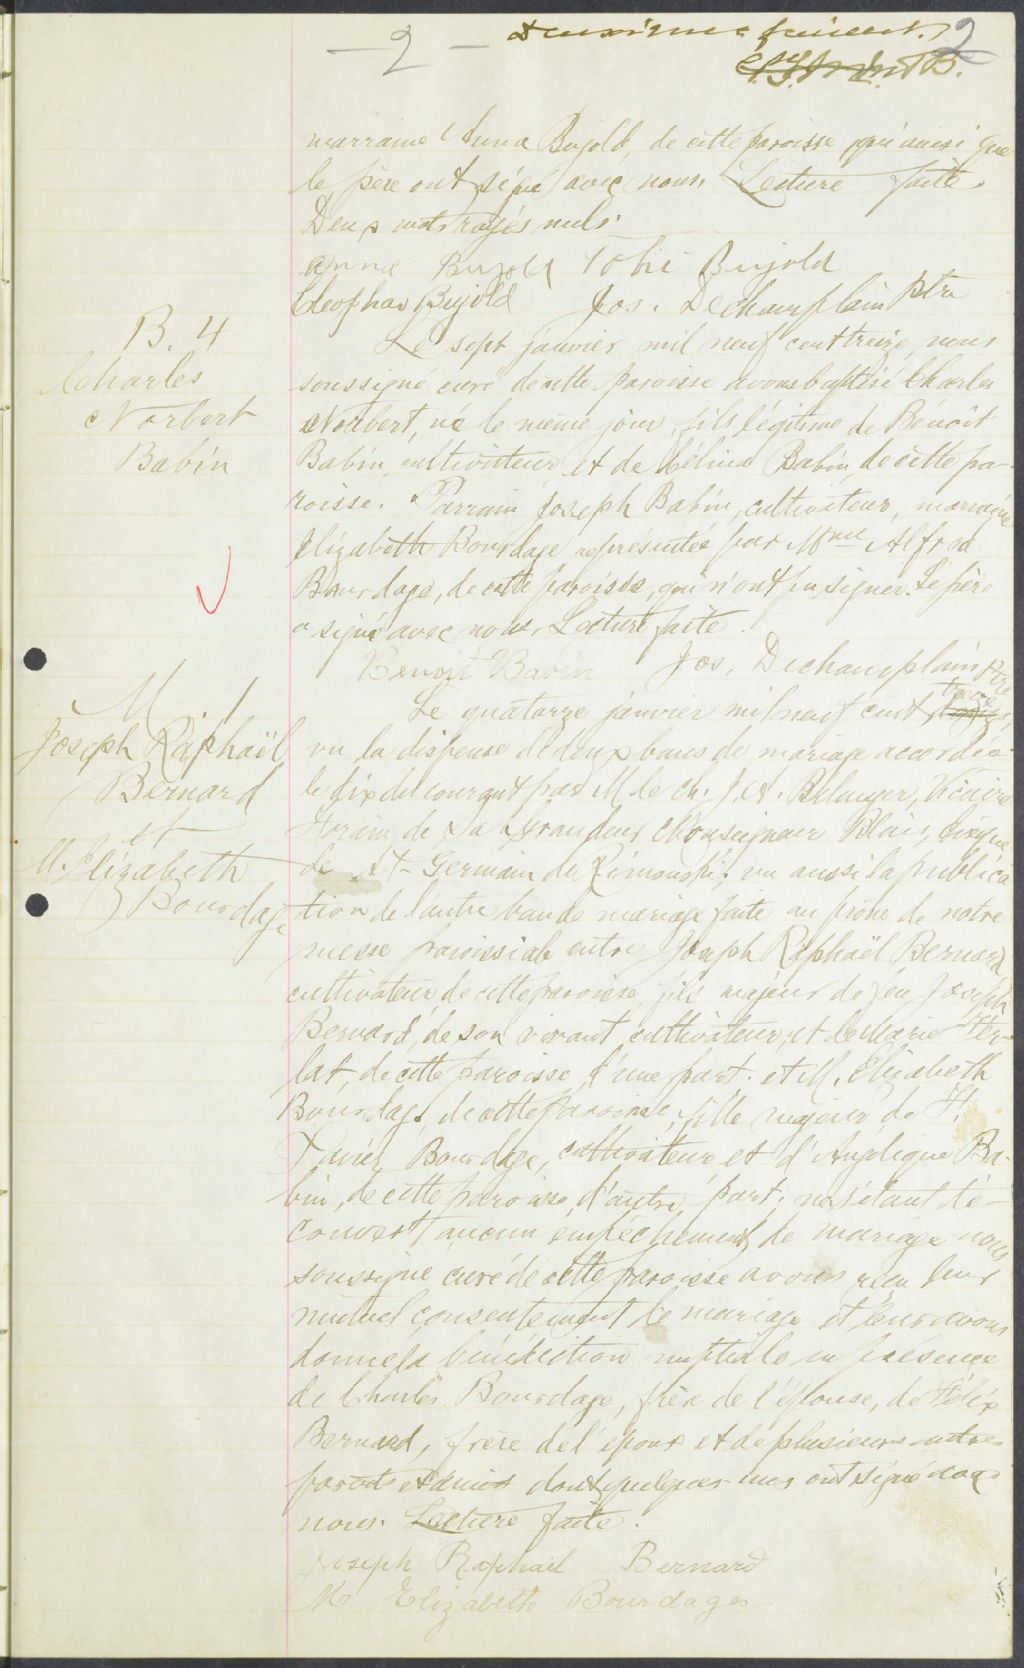 — 2 — Deuxième feuillet. 2
marraine Anna Bujold, de cette paroisse qui ainsi que
le père ont signé avec nous. Lecture faite.
Deux mots rayés nuls.
Anna Bujold Tobie Bujold
Cleophas Bujold Jos. Dechamplain Ptre
B. 4
Charles
Norbert
Babin
Le sept janvier mil neuf cent treize, nous
soussigné curé de cette paroisse avons baptisé Charles
Norbert, né le même jour, fils légitime de Bénoit
Babin, cultivateur et de Célina Babin, de cette pa-
roisse. Parrain Joseph Babin, cultivateur, marraine
Elizabeth Bourdage représentée par Mme Alfred
Bourdage, de cette paroisse, qui n'ont pu signer. Le père
a signé avec nous. Lecture faite.
Benoit Babin Jos. Dechamplain Ptre
M 1
Joseph Raphaël
Bernard
et
M. Elizabeth
Bourdage
Le quatorze janvier mil neuf cent treize,
vu la dispense de deux bans de mariage accordée
le dix du courant par M le Ch. J. A. Belanger, Vicaire
Forain de Sa Grandeur Monseigneur Blais, évêque
de St-Germain de Rimouski; vu aussi la publica
tion de l'autre ban de mariage faite au prône de notre
messe paroissiale entre Joseph Raphaël Bernard
cultivateur de cette paroisse, fils majeur de feu Joseph
Bernard, de son vivant cultivateur, et de Marie Fer-
lat, de cette paroisse, d'une part. et M. Elizabeth
Bourdage, de cette paroisse, fille majeur de F.
Xavier Bourdage, cultivateur et d'Angélique Ba-
bin, de cette paroisse, d'autre part; ne s'étant dé-
couvert aucun empêchement de mariage nous
soussigné curé de cette paroisse avons reçu leur
mutuel consentement de mariage et leur avons
donné la bénédiction nuptiale en présence
de Charles Bourdage, frère de l'épouse, de Félix
Bernard, frère de l'époux et de plusieurs autres
parents et amis dont quelques uns ont signé avec
nous. Lecture faite.
Joseph Raphaël Bernard
M Elizabeth Bourdages